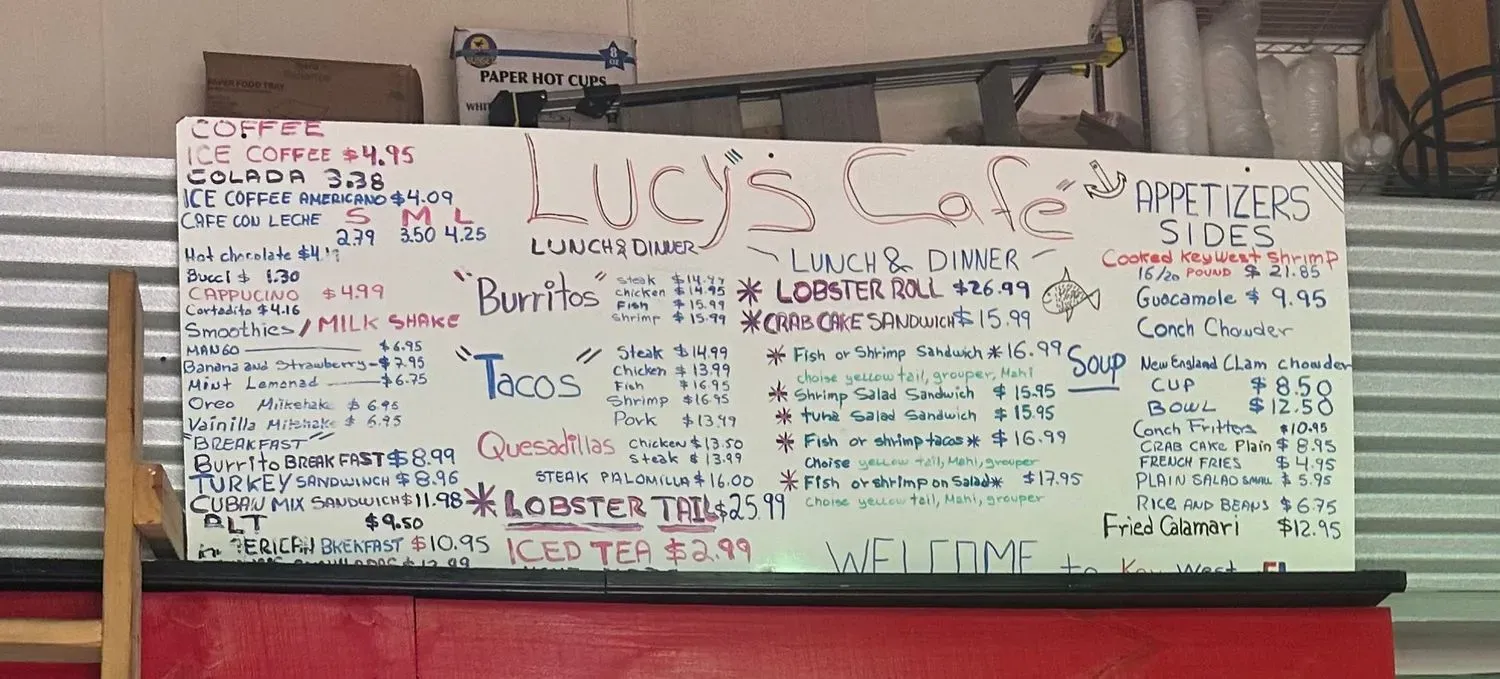 PAPER FOOD TRAY
8
OZ
PAPER HOT CUPS
COFFEE
ICE COFFEE $4.95
COLADA 3.38
ICE COFFEE AMERICANO $4.09
CAFE CON LECHE S M L
2.79 3.50 4.25
Hot chocolate
Bucci $ 1.30
CAPPUCINO $4.99
Cortadito $4.16
Smoothies / MILK SHAKE
MANGO $6.95
Banana and Strawberry - $7.95
Mint Lemonad $6.75
Oreo Milkshake $ 6.95
Vainilla Milkshake $ 6.95
"BREAKFAST"
Burrito BREAKFAST $8.99
TURKEY SANDWINCH $8.96
CUBAN MIX SANDWICH $11.98
BLT $9.50
BREKFAST $10.95
Lucy's Cafe
LUNCH & DINNER
"Burritos"
Steak
Chicken $14.95
Fish $15.99
Shrimp $15.99
"Tacos"
Steak $14.99
Chicken $13.99
Fish $16.95
Shrimp $16.95
Pork $13.99
Quesadillas
Chicken $13.50
Steak $13.99
STEAK PALOMILLA $16.00
* LOBSTER TAIL $25.99
ICED TEA $2.99
LUNCH & DINNER
* LOBSTER ROLL $26.99
* CRAB CAKE SANDWICH $15.99
* Fish or Shrimp Sandwich * 16.99
choise yellow tail, grouper, Mahi
* Shrimp Salad Sandwich $ 15.95
* tuna Salad Sandwich $ 15.95
* Fish or shrimp tacos * $16.99
Choise yellow tail, Mahi, grouper
* Fish or shrimp on Salad * $17.95
Choise yellow tail, Mahi, grouper
WELCOME to Key West FL
APPETIZERS
SIDES
Cooked Key West Shrimp
16/20 POUND $ 21.85
Guacamole $ 9.95
Conch Chowder
Soup
New England Clam chowder
CUP $8.50
BOWL $12.50
Conch Fritters $10.95
CRAB CAKE Plain $8.95
FRENCH FRIES $4.95
PLAIN SALAD SMALL $5.95
RICE AND BEANS $6.75
Fried Calamari $12.95